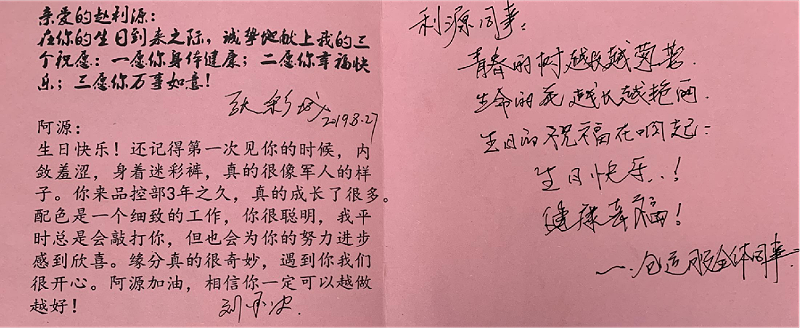 亲爱的赵利源：
在你的生日到来之际，诚挚地献上我的三
个祝愿：一愿你身体健康；二愿你幸福快
乐；三愿你万事如意！
2019.8.27
阿源：
生日快乐！还记得第一次见你的时候，内
敛羞涩，身着迷彩裤，真的很像军人的样
子。你来品控部3年之久，真的成长了很多。
配色是一个细致的工作，你很聪明，我平
时总是会敲打你，但也会为你的努力进步
感到欣喜。缘分真的很奇妙，遇到你我们
很开心。阿源加油，相信你一定可以越做
越好！
利源同事：
青春的树越长越
生命的花越长越艳丽
生日的祝福在响起：
生日快乐..！
健康幸福！
全体同事